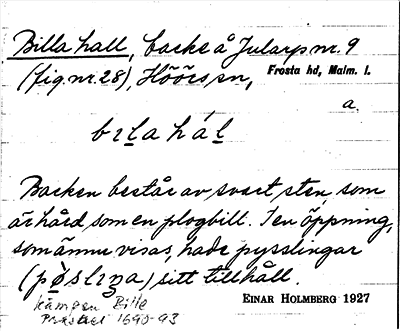 Billa hall, backe å Jularp nr. 9
(fig. nr. 28), Höörs sn, Frosta hd, Malm. l.
a.
bɩlahál
Backen består av svart sten, som
är hård som en plogbill. I en öppning,
som ännu visas, hade pysslingar
(pøslɩŋa) sitt tillhåll.
kämpen Bille
1690-93
EINAR HOLMBERG 1927